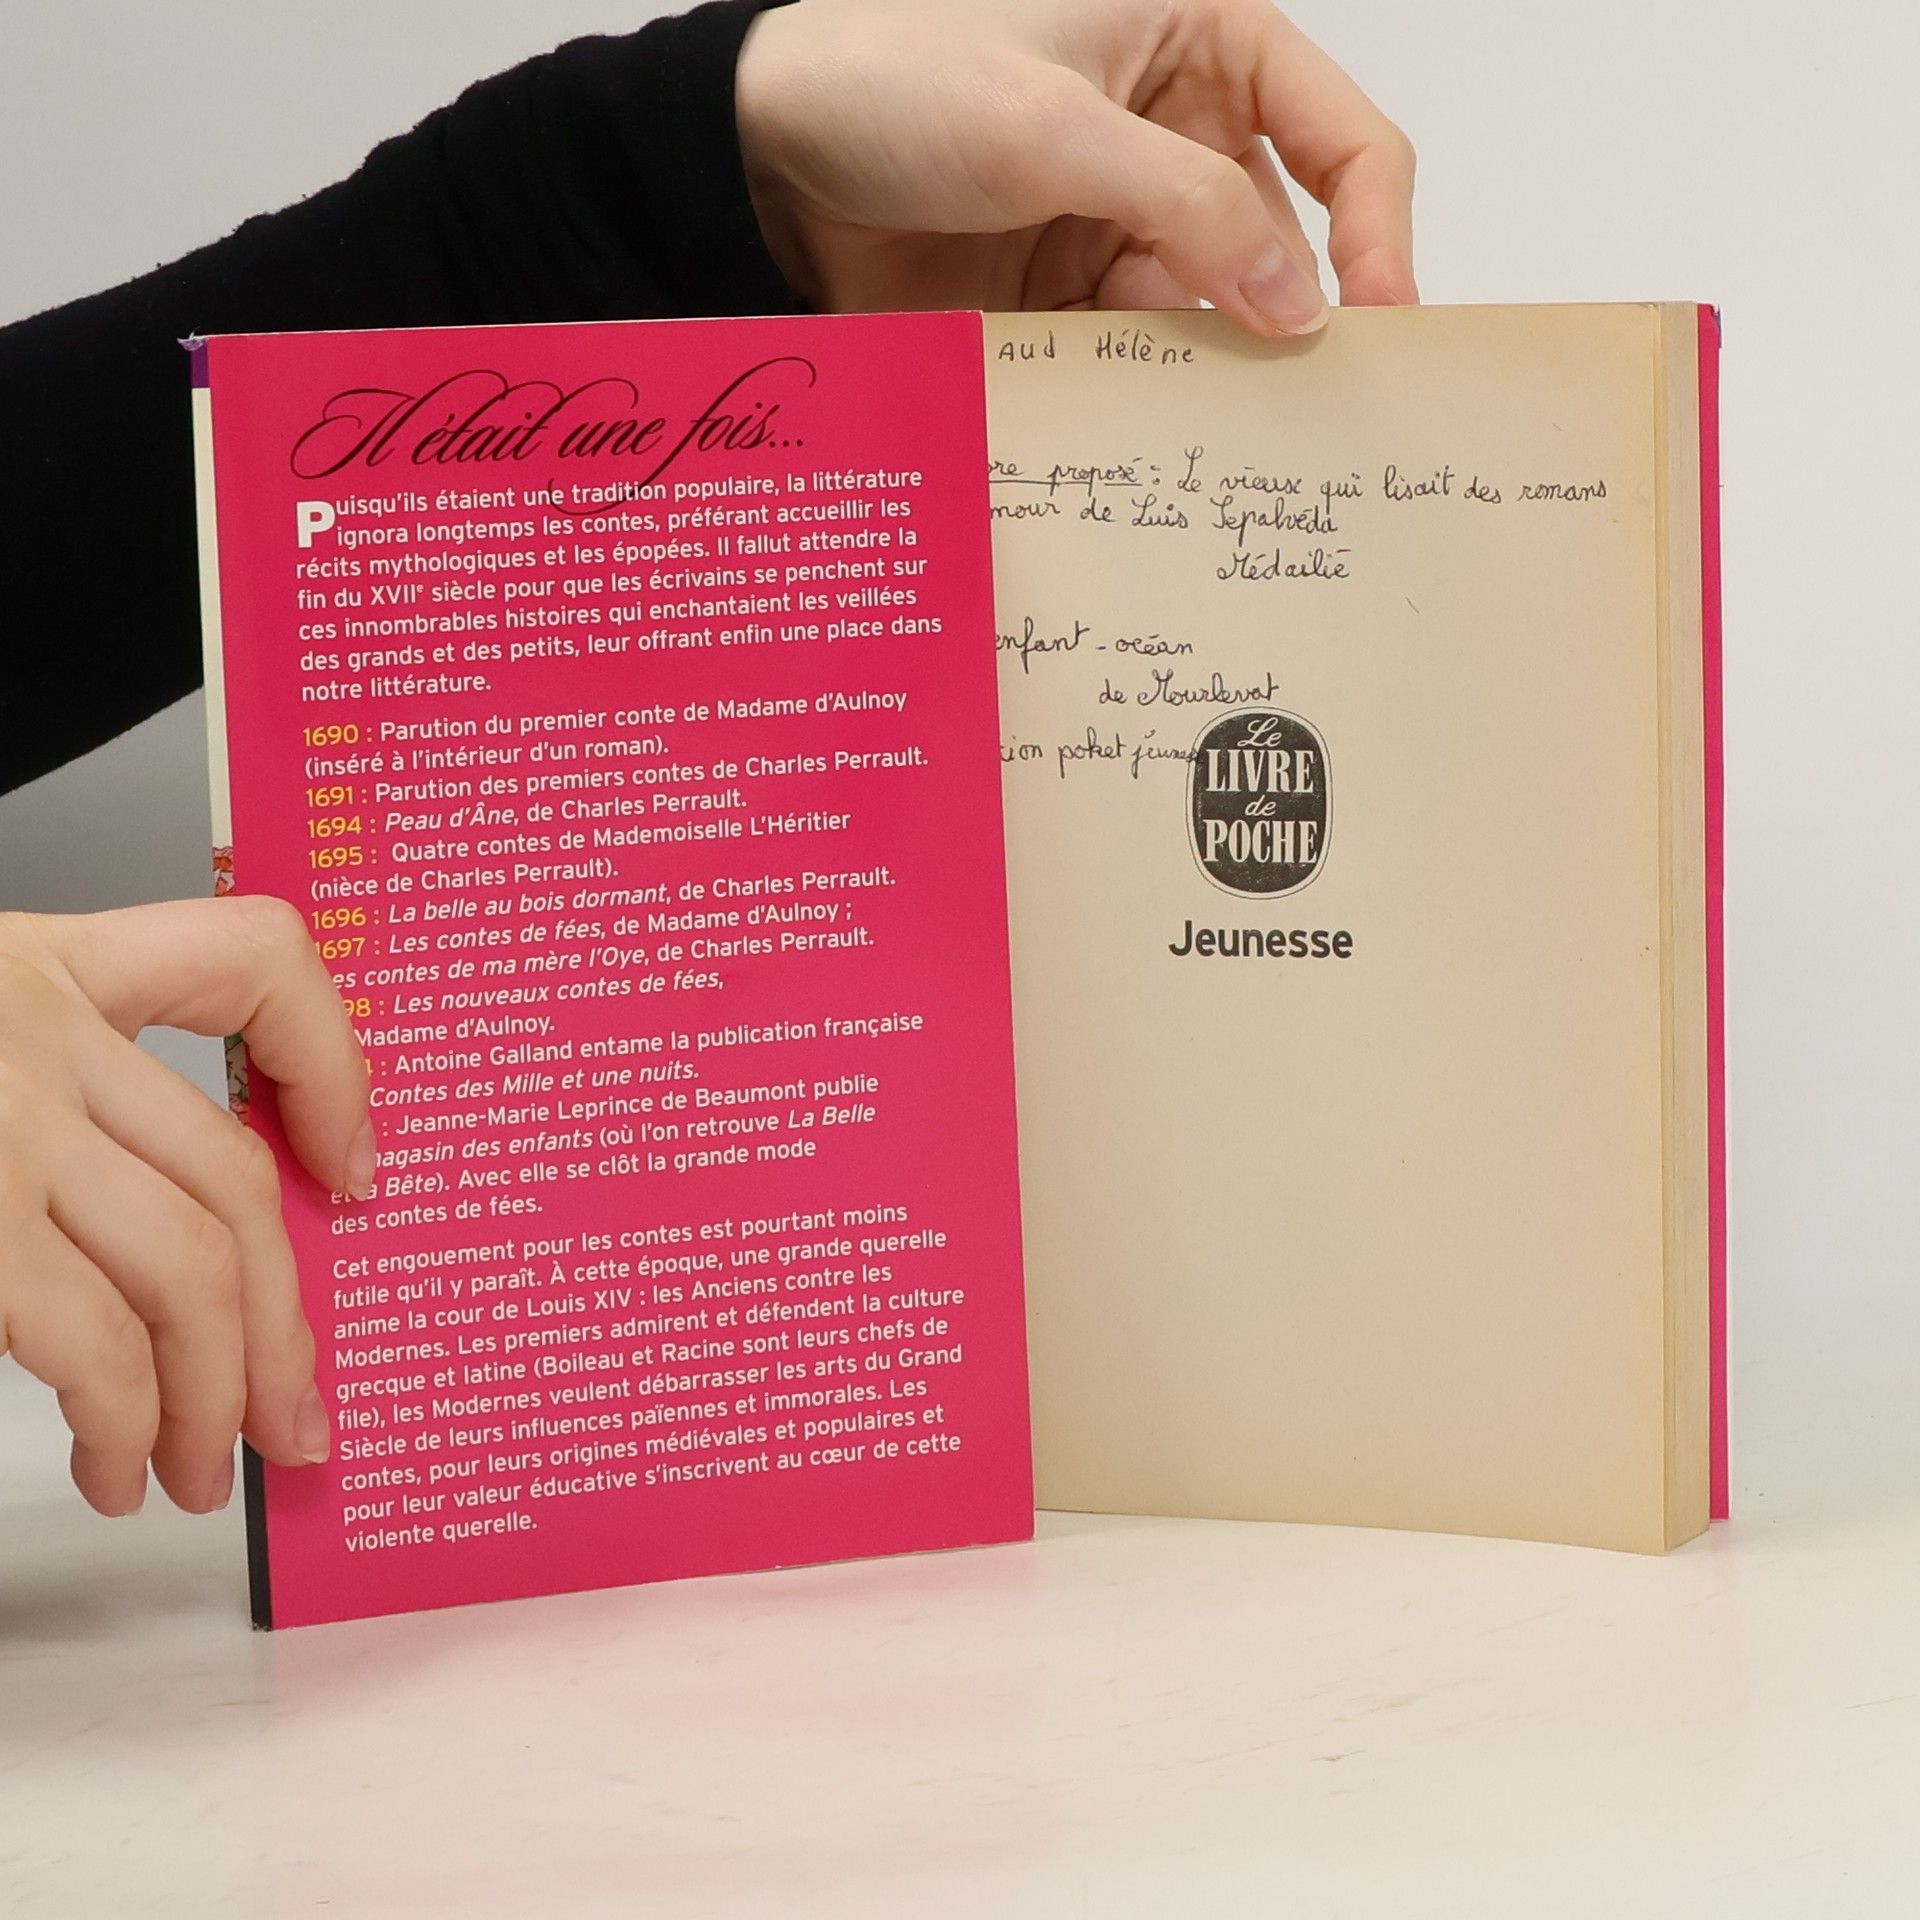 Il était une fois...
Puisqu'ils étaient une tradition populaire, la littérature
ignora longtemps les contes, préférant accueillir les
récits mythologiques et les épopées. Il fallut attendre la
fin du XVIIe siècle pour que les écrivains se penchent sur
ces innombrables histoires qui enchantaient les veillées
des grands et des petits, leur offrant enfin une place dans
notre littérature.
1690 : Parution du premier conte de Madame d'Aulnoy
(inséré à l'intérieur d'un roman).
1691 : Parution des premiers contes de Charles Perrault.
1694 : Peau d'Âne, de Charles Perrault.
1695 : Quatre contes de Mademoiselle L'Héritier
(nièce de Charles Perrault).
1696 : La belle au bois dormant, de Charles Perrault.
1697 : Les contes de fées, de Madame d'Aulnoy ;
es contes de ma mère l'Oye, de Charles Perrault.
98 : Les nouveaux contes de fées,
Madame d'Aulnoy.
: Antoine Galland entame la publication française
Contes des Mille et une nuits.
: Jeanne-Marie Leprince de Beaumont publie
agasin des enfants (où l'on retrouve La Belle
et la Bête). Avec elle se clôt la grande mode
des contes de fées.
Cet engouement pour les contes est pourtant moins
futile qu'il y paraît. À cette époque, une grande querelle
anime la cour de Louis XIV : les Anciens contre les
Modernes. Les premiers admirent et défendent la culture
grecque et latine (Boileau et Racine sont leurs chefs de
file), les Modernes veulent débarrasser les arts du Grand
Siècle de leurs influences païennes et immorales. Les
contes, pour leurs origines médiévales et populaires et
pour leur valeur éducative s'inscrivent au cœur de cette
violente querelle.
aud Hélène
re proposé : Le vieux qui lisait des romans
mour de Luis Sepalvéda
Médailié
enfant - océan
de Mourlevat
tion poket jeunes
Le
LIVRE
de
POCHE
Jeunesse